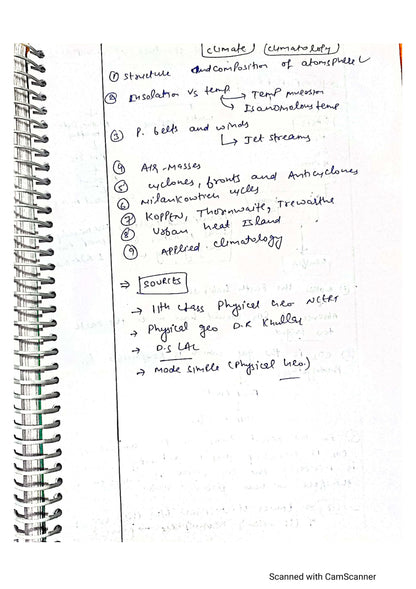 climate (climatology)
① Structure and composition of atomsphere
② Insolation vs temp → Temp inversion
→ Isanomalous temp
③ P. belts and winds
→ Jet streams
④ AIR-MASSES
⑤ cyclones, fronts and Anticyclones
⑥ Milankowtich cycles
⑦ Koppen, Thornwaite, Trewartha
⑧ Urban heat Island
⑨ Applied climatology
⇒ SOURCES
→ 11th class Physical Geo NCERT
→ Physical geo D.R Khullar
→ D.S LAL
→ Made simple (Physical Geo.)
Scanned with CamScanner